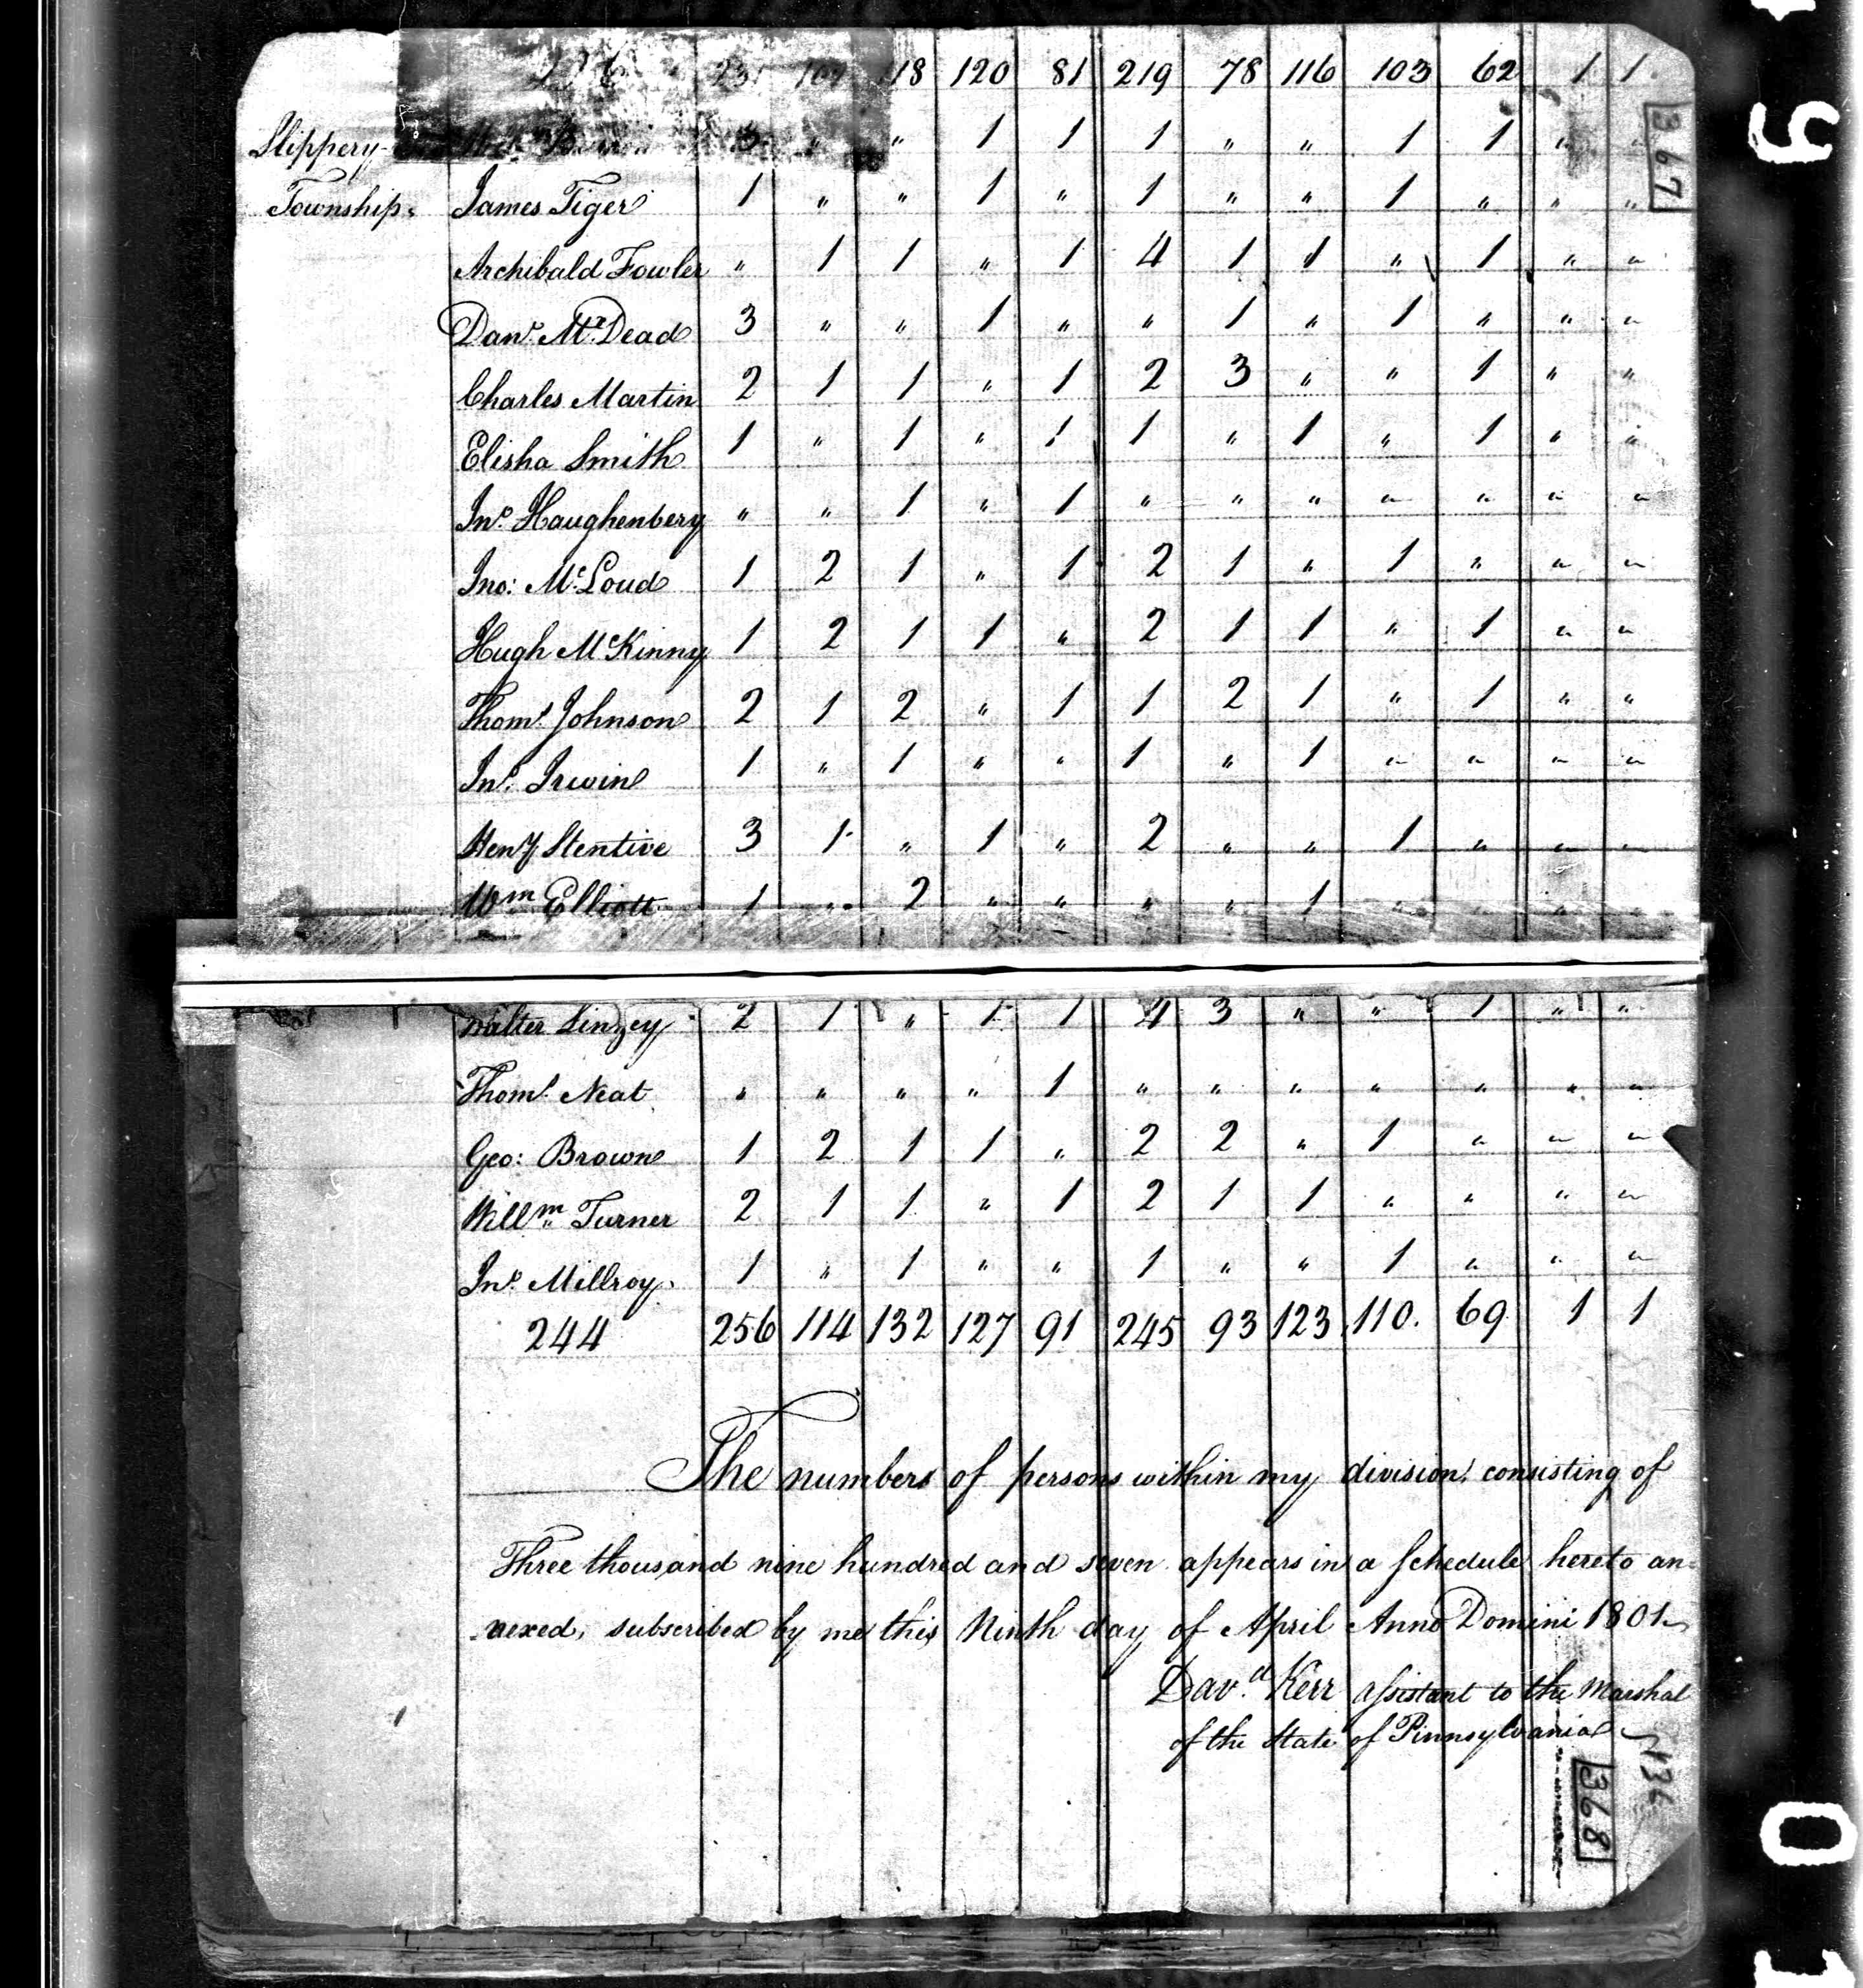 231 118 120 81 219 78 116 103 62 1 1
Slippery 3 " " 1 1 1 " " 1 1 " "
Township. James Tiger 1 " " 1 " 1 " " 1 " " "
Archibald Fowler " 1 1 " 1 4 1 1 " 1 " "
Danl. Mc.Dead 3 " " 1 " " 1 " 1 " " "
Charles Martin 2 1 1 " 1 2 3 " " 1 " "
Elisha Smith 1 " 1 " 1 1 " 1 " 1 " "
Jno. Haughenbery " " 1 " 1 " " " " " " "
Jno: Mc.Loud 1 2 1 " 1 2 1 " 1 " " "
Hugh McKinny 1 2 1 1 " 2 1 1 " 1 " "
Thoms. Johnson 2 1 2 " 1 1 2 1 " 1 " "
Jno. Irwin 1 " 1 " " 1 " 1 " " " "
Heny Stentive 3 1 " 1 " 2 " " 1 " " "
Wm Elliott 1 " 2 " " " " 1 " " " "
Walter Linzey 2 1 " 1 1 4 3 " " 1 " "
Thoms. Neat " " " " 1 " " " " " " "
Geo: Brown 1 2 1 1 " 2 2 " 1 " " "
Willm Turner 2 1 1 " 1 2 1 1 " " " "
Jno. Millroy 1 " 1 " " 1 " " 1 " " "
244 256 114 132 127 91 245 93 123 110. 69 1 1
The numbers of persons within my division, consisting of
Three thousand nine hundred and seven appears in a Schedule hereto an
nexed, subscribed by me this Ninth day of April Anno Domini 1801
Davd. Kerr assistant to the Marshal
of the State of Pinnsylvania
367
368
136
9
10